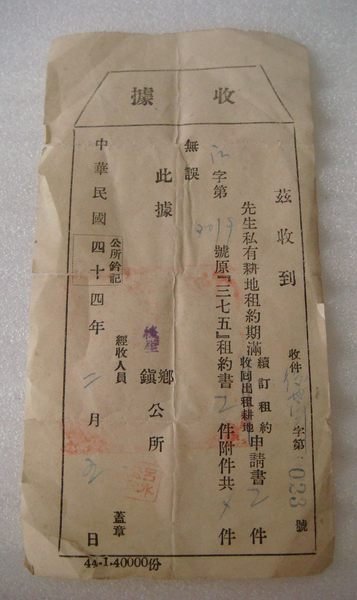 收據
茲收到
收件 字第 023 號
先生私有耕地租約期滿 續訂租約 收回出租耕地 申請書 2 件
字第 2019 號原『三七五』租約書 2 件附件共 件
無誤
此據
鄉鎮公所
經收人員 蓋章
公所鈐記
中華民國四十四年 二 月 日
44·1·40000份